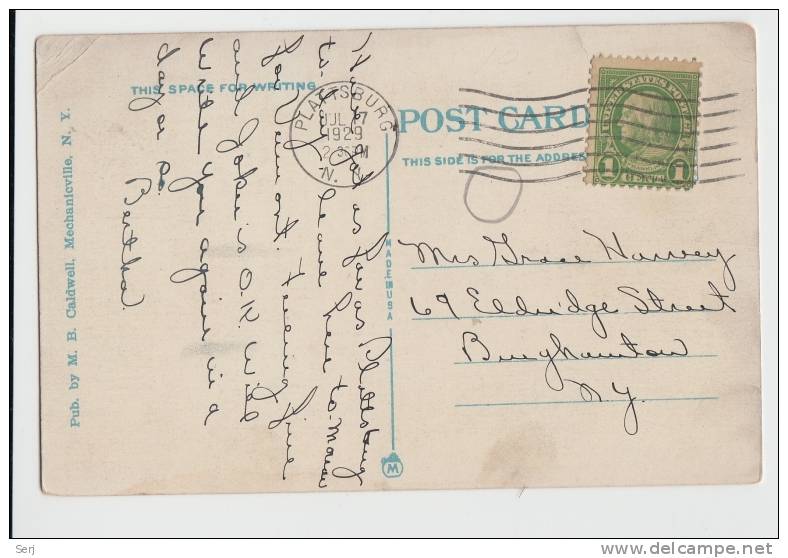 THIS SPACE FOR WRITING
Have got as far as Plattsburg
to-day leave here to-morrow
for Vermont. Feeling fine
and John is O.K. Will
write you again in a
day or so.
Bertha.
Pub. by M. B. Caldwell, Mechanicville, N. Y.
PLATTSBURG
JUL 17
1929
N. Y.
MADE IN USA
M
POST CARD
THIS SIDE IS FOR THE ADDRESS
UNITED STATES POSTAGE
1 CENT 1
Mrs Grace Harvey
69 Eldridge Street
Binghamton
N.Y.
Serj
delcampe.net